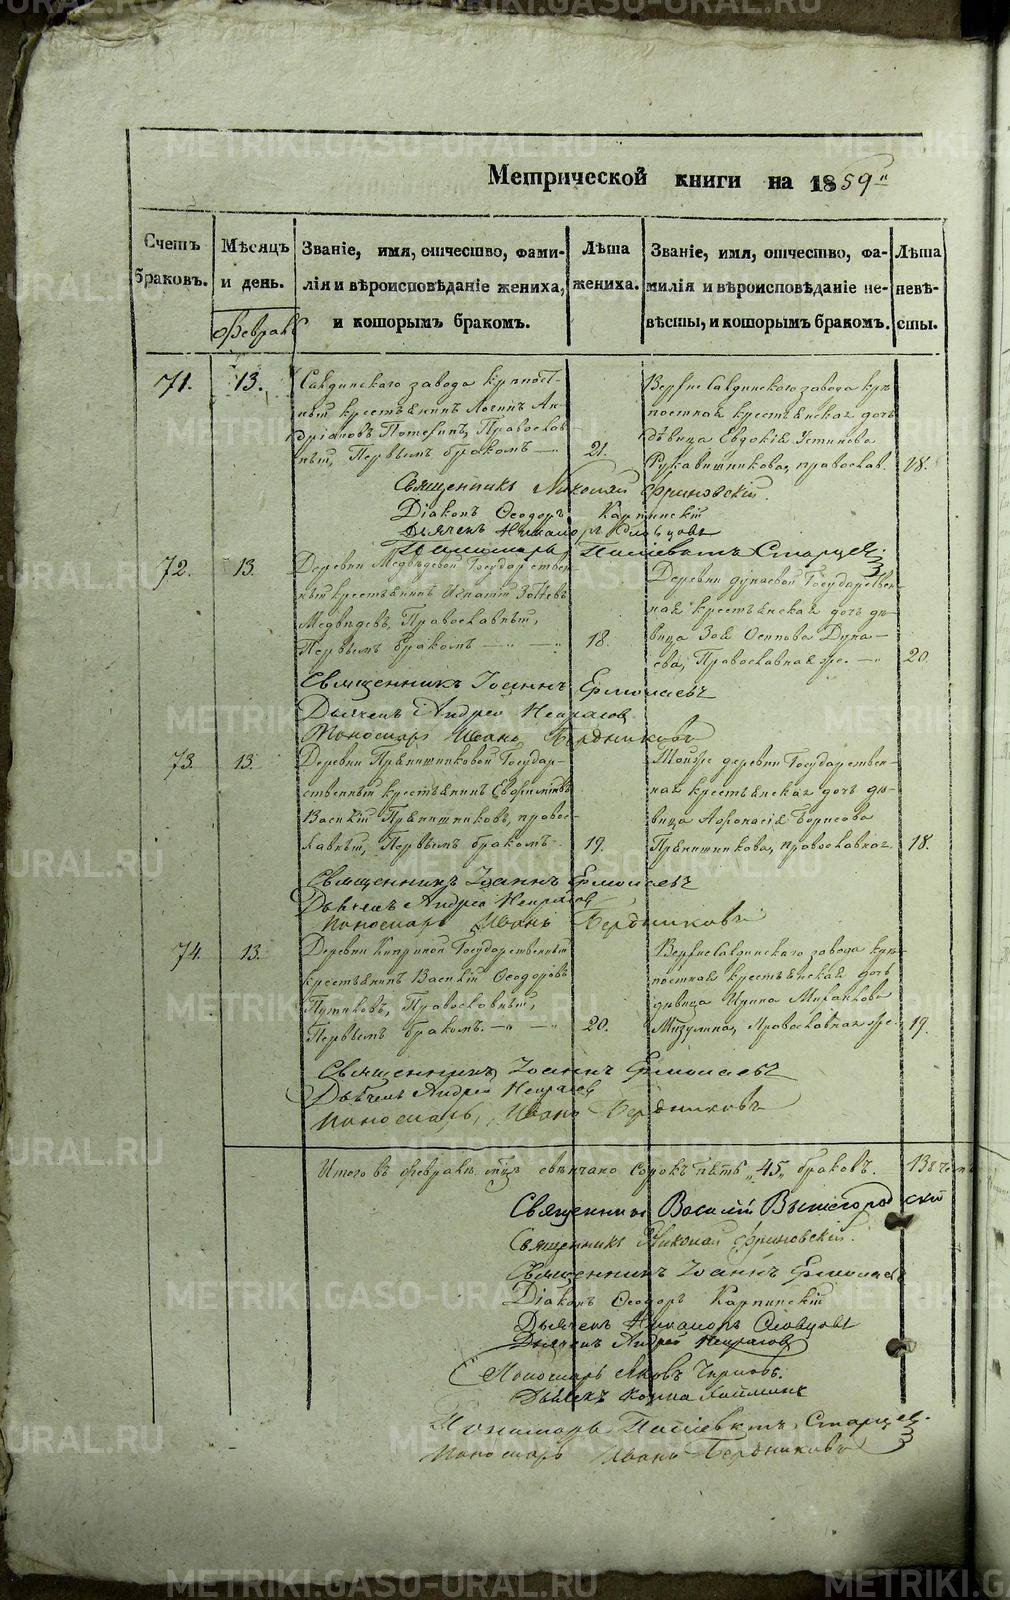 Метрической книги на 1859й
Счетъ браковъ.
Мѣсяцъ и день.
Званіе, имя, отчество, фами-
лія и вѣроисповѣданіе жениха,
и которымъ бракомъ.
Лѣта
жениха.
Званіе, имя, отчество, фа-
милія и вѣроисповѣданіе не-
вѣсты, и которымъ бракомъ.
Лѣта
невѣ-
сты.
Февраль
71.
13.
Салдинскаго завода крѣпост-
ный крестьянинъ Логинъ Ан-
дріановъ Православ-
ный, Первымъ бракомъ
21.
Верхне Салдинскаго завода крѣ
постная крестьянская дочь
дѣвица Евдокія Устинова
Рукавишникова, православ.
18.
Священникъ Николай Фриновскій.
Діаконъ Ѳеодоръ Карпинскій
Дьячекъ Никаноръ Словцовъ
Пономарь Старцев
72.
13.
Деревни Медвѣдевой Государствен-
ный крестьянинъ Игнатій Зотѣевъ
Медвѣдевъ, Православный,
Первымъ бракомъ
18.
Деревни Дунаевой Государствен-
ная крестьянская дочь дѣ-
вица Зоя Осипова Дуна-
ева, Православная
20.
Священникъ Іоаннъ Ермолаевъ
Дьячекъ Андрей Некрасов
Пономарь Иванъ Бердниковъ
73.
13.
Деревни Прянишниковой Государ-
ственный крестьянинъ
Прянишниковъ, право-
славный, Первымъ бракомъ
19.
Тойже деревни Государствен-
ная крестьянская дочь дѣ-
вица Афанасія Борисова
Прянишникова, православная.
18.
Священникъ Іоаннъ Ермолаевъ
Дьячекъ Андрей Некрасов
Пономарь Иванъ Бердниковъ
74.
13.
Деревни Киприной Государственный
крестьянинъ Василій Ѳеодоровъ
Путиковъ, Православный,
Первымъ бракомъ.
20.
Верхнесалдинскаго завода крѣ-
постная крестьянская дочь
дѣвица Ирина Михайлова
Мизулина, Православная
19.
Священникъ Іоаннъ Ермолаевъ
Дьячекъ Андрей Некрасов
Пономарь Иванъ Бердниковъ
Итого въ февралѣ м-цѣ свѣнчано сорокъ пять „45„ браковъ. Въ чемъ
Священникъ Василій Вышегородскій
Священникъ Николай Фриновскій.
Священникъ Іоаннъ Ермолаевъ
Діаконъ Ѳеодоръ Карпинскій
Дьячекъ Никаноръ Словцовъ
Дьячекъ Андрей Некрасов
Пономарь Яковъ Черновъ.
Дьячекъ Козма
Пономарь Старцев.
Пономарь Иванъ Бердниковъ
METRIKI.GASO-URAL.RU